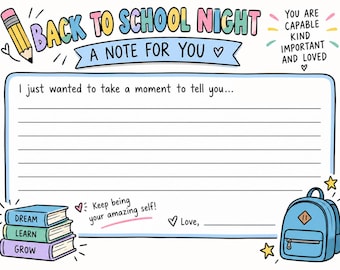 BACK TO SCHOOL NIGHT
A NOTE FOR YOU
YOU ARE
CAPABLE
KIND
IMPORTANT
AND LOVED
I just wanted to take a moment to tell you...
DREAM
LEARN
GROW
Keep being
your amazing self!
Love,